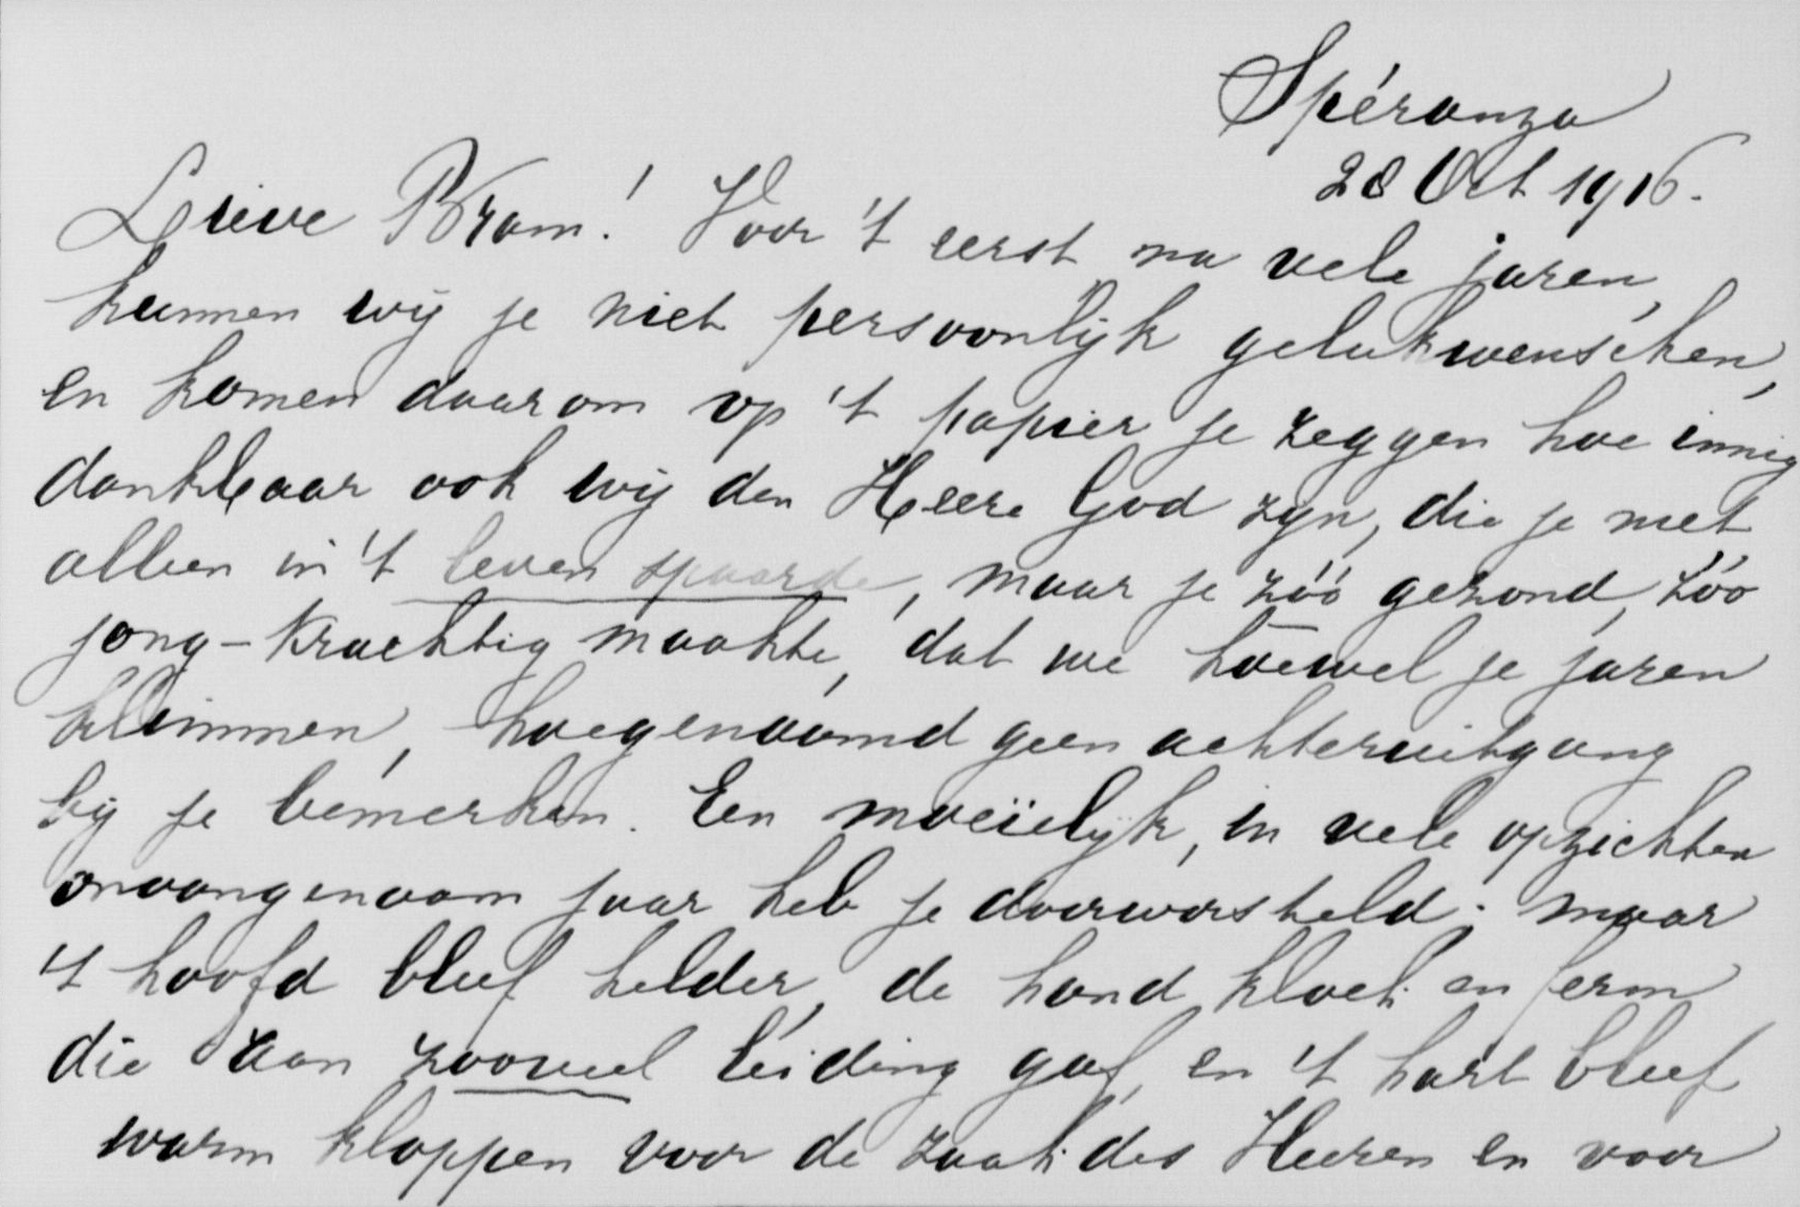 Spéranza
28 Oct 1916.
Lieve Bram! Voor 't eerst na vele jaren,
kunnen wij je niet persoonlijk gelukwenschen,
en komen daarom op 't papier je zeggen hoe innig
dankbaar ook wij den Heere God zijn, die je niet
alleen in 't leven spaarde, maar je zóó gezond, zóó
jong-krachtig maakte, dat we hoewel je jaren
klimmen, hoegenaamd geen achteruitgang
bij je bemerken. Een moeielijk, in vele opzichten
onaangenaam jaar heb je doorworsteld; maar
't hoofd bleef helder, de hand kloek en ferm
die aan zooveel leiding gaf, en 't hart bleef
warm kloppen voor de zaak des Heeren en voor